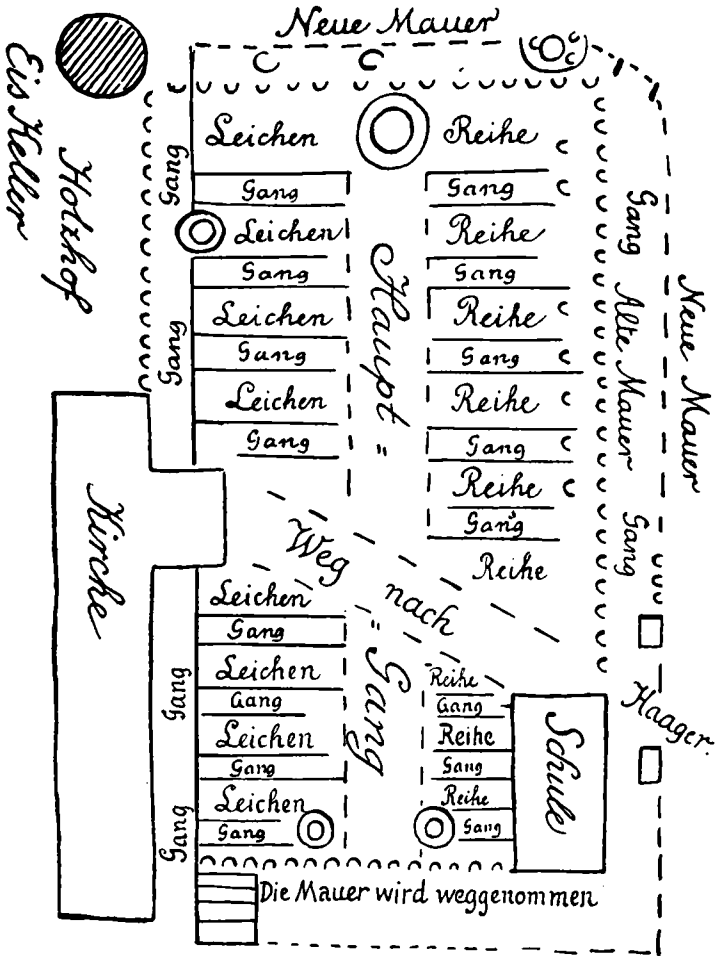 Neue Mauer
Eis Keller
Holzhof
Gang
Leichen
Reihe
Gang
Gang
Leichen
Reihe
Gang
Gang
Gang
Leichen
Reihe
Gang
Gang
Gang
Leichen
Reihe
Gang
Gang
Reihe
Gang
Reihe
Haupt =
Gang
Alte Mauer
Gang
Neue Mauer
Kirche
Weg nach
Haager.
= Gang
Leichen
Gang
Gang
Leichen
Reihe
Gang
Gang
Leichen
Reihe
Gang
Gang
Gang
Leichen
Reihe
Gang
Gang
Schule
Die Mauer wird weggenommen